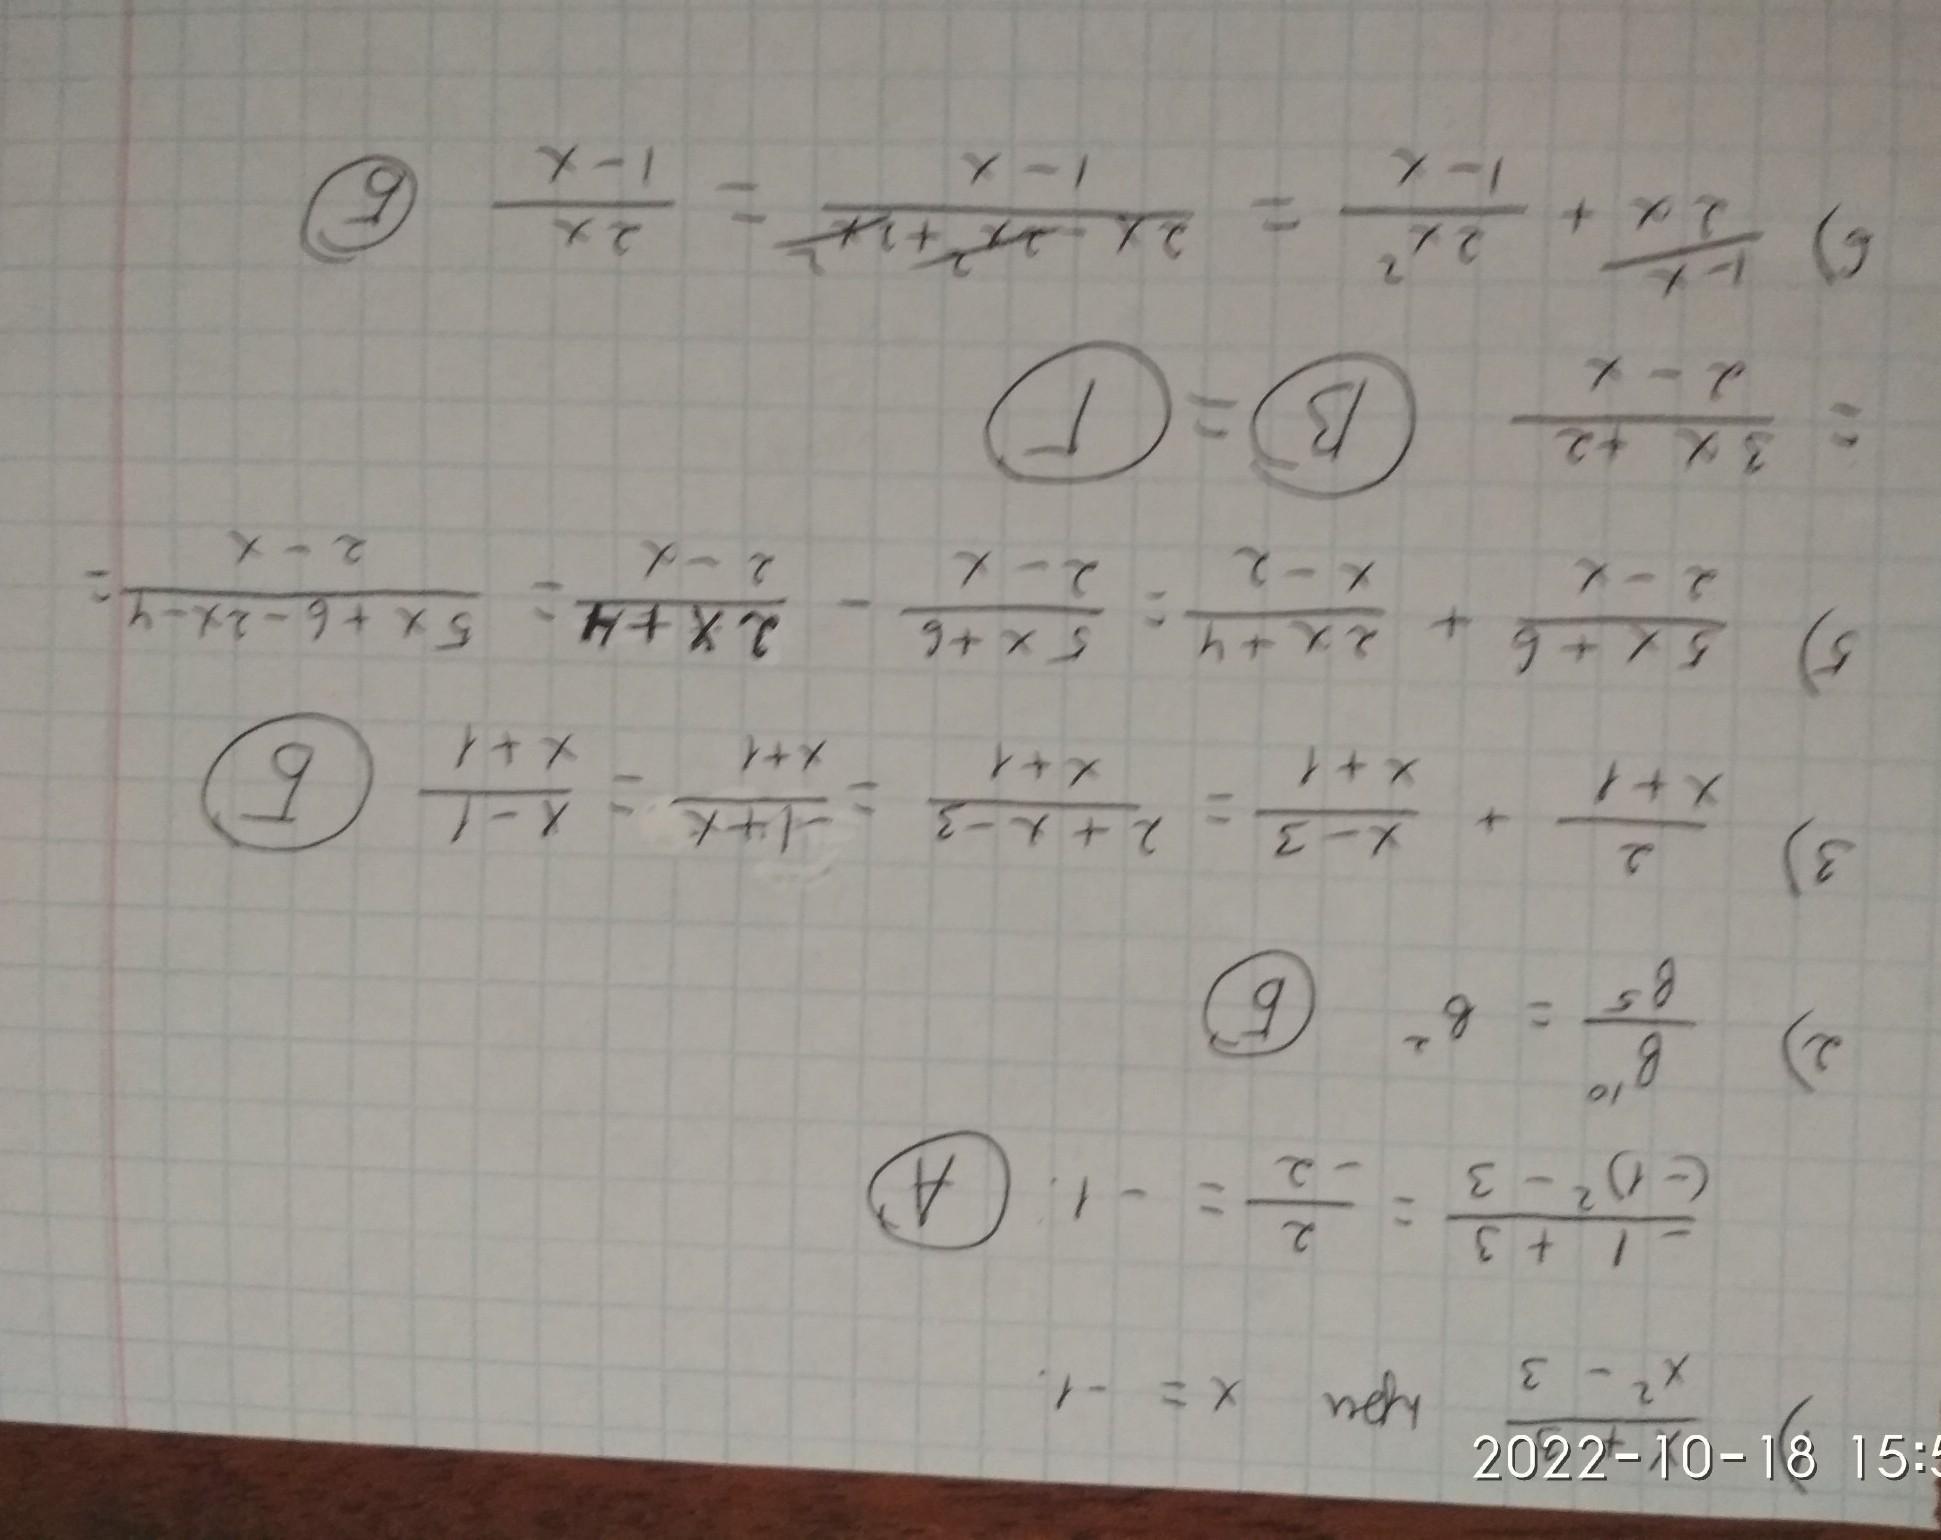 1) (x + 3)/(x² - 3) при x = -1.
(-1 + 3)/((-1)² - 3) = 2/(-2) = -1. А
2) в¹⁰/в⁵ = в² Б
3) 2/(x+1) + (x-3)/(x+1) = (2+x-3)/(x+1) = (-1+x)/(x+1) = (x-1)/(x+1) Б
5) (5x+6)/(2-x) + (2x+4)/(x-2) = (5x+6)/(2-x) - (2x+4)/(2-x) = (5x+6-2x-4)/(2-x) =
= (3x+2)/(2-x) В = Г
6) (1-x)/(2x) + 2x²/(1-x) = (2x-2x²+2x²)/(1-x) = 2x/(1-x) Б
2022-10-18 15:5